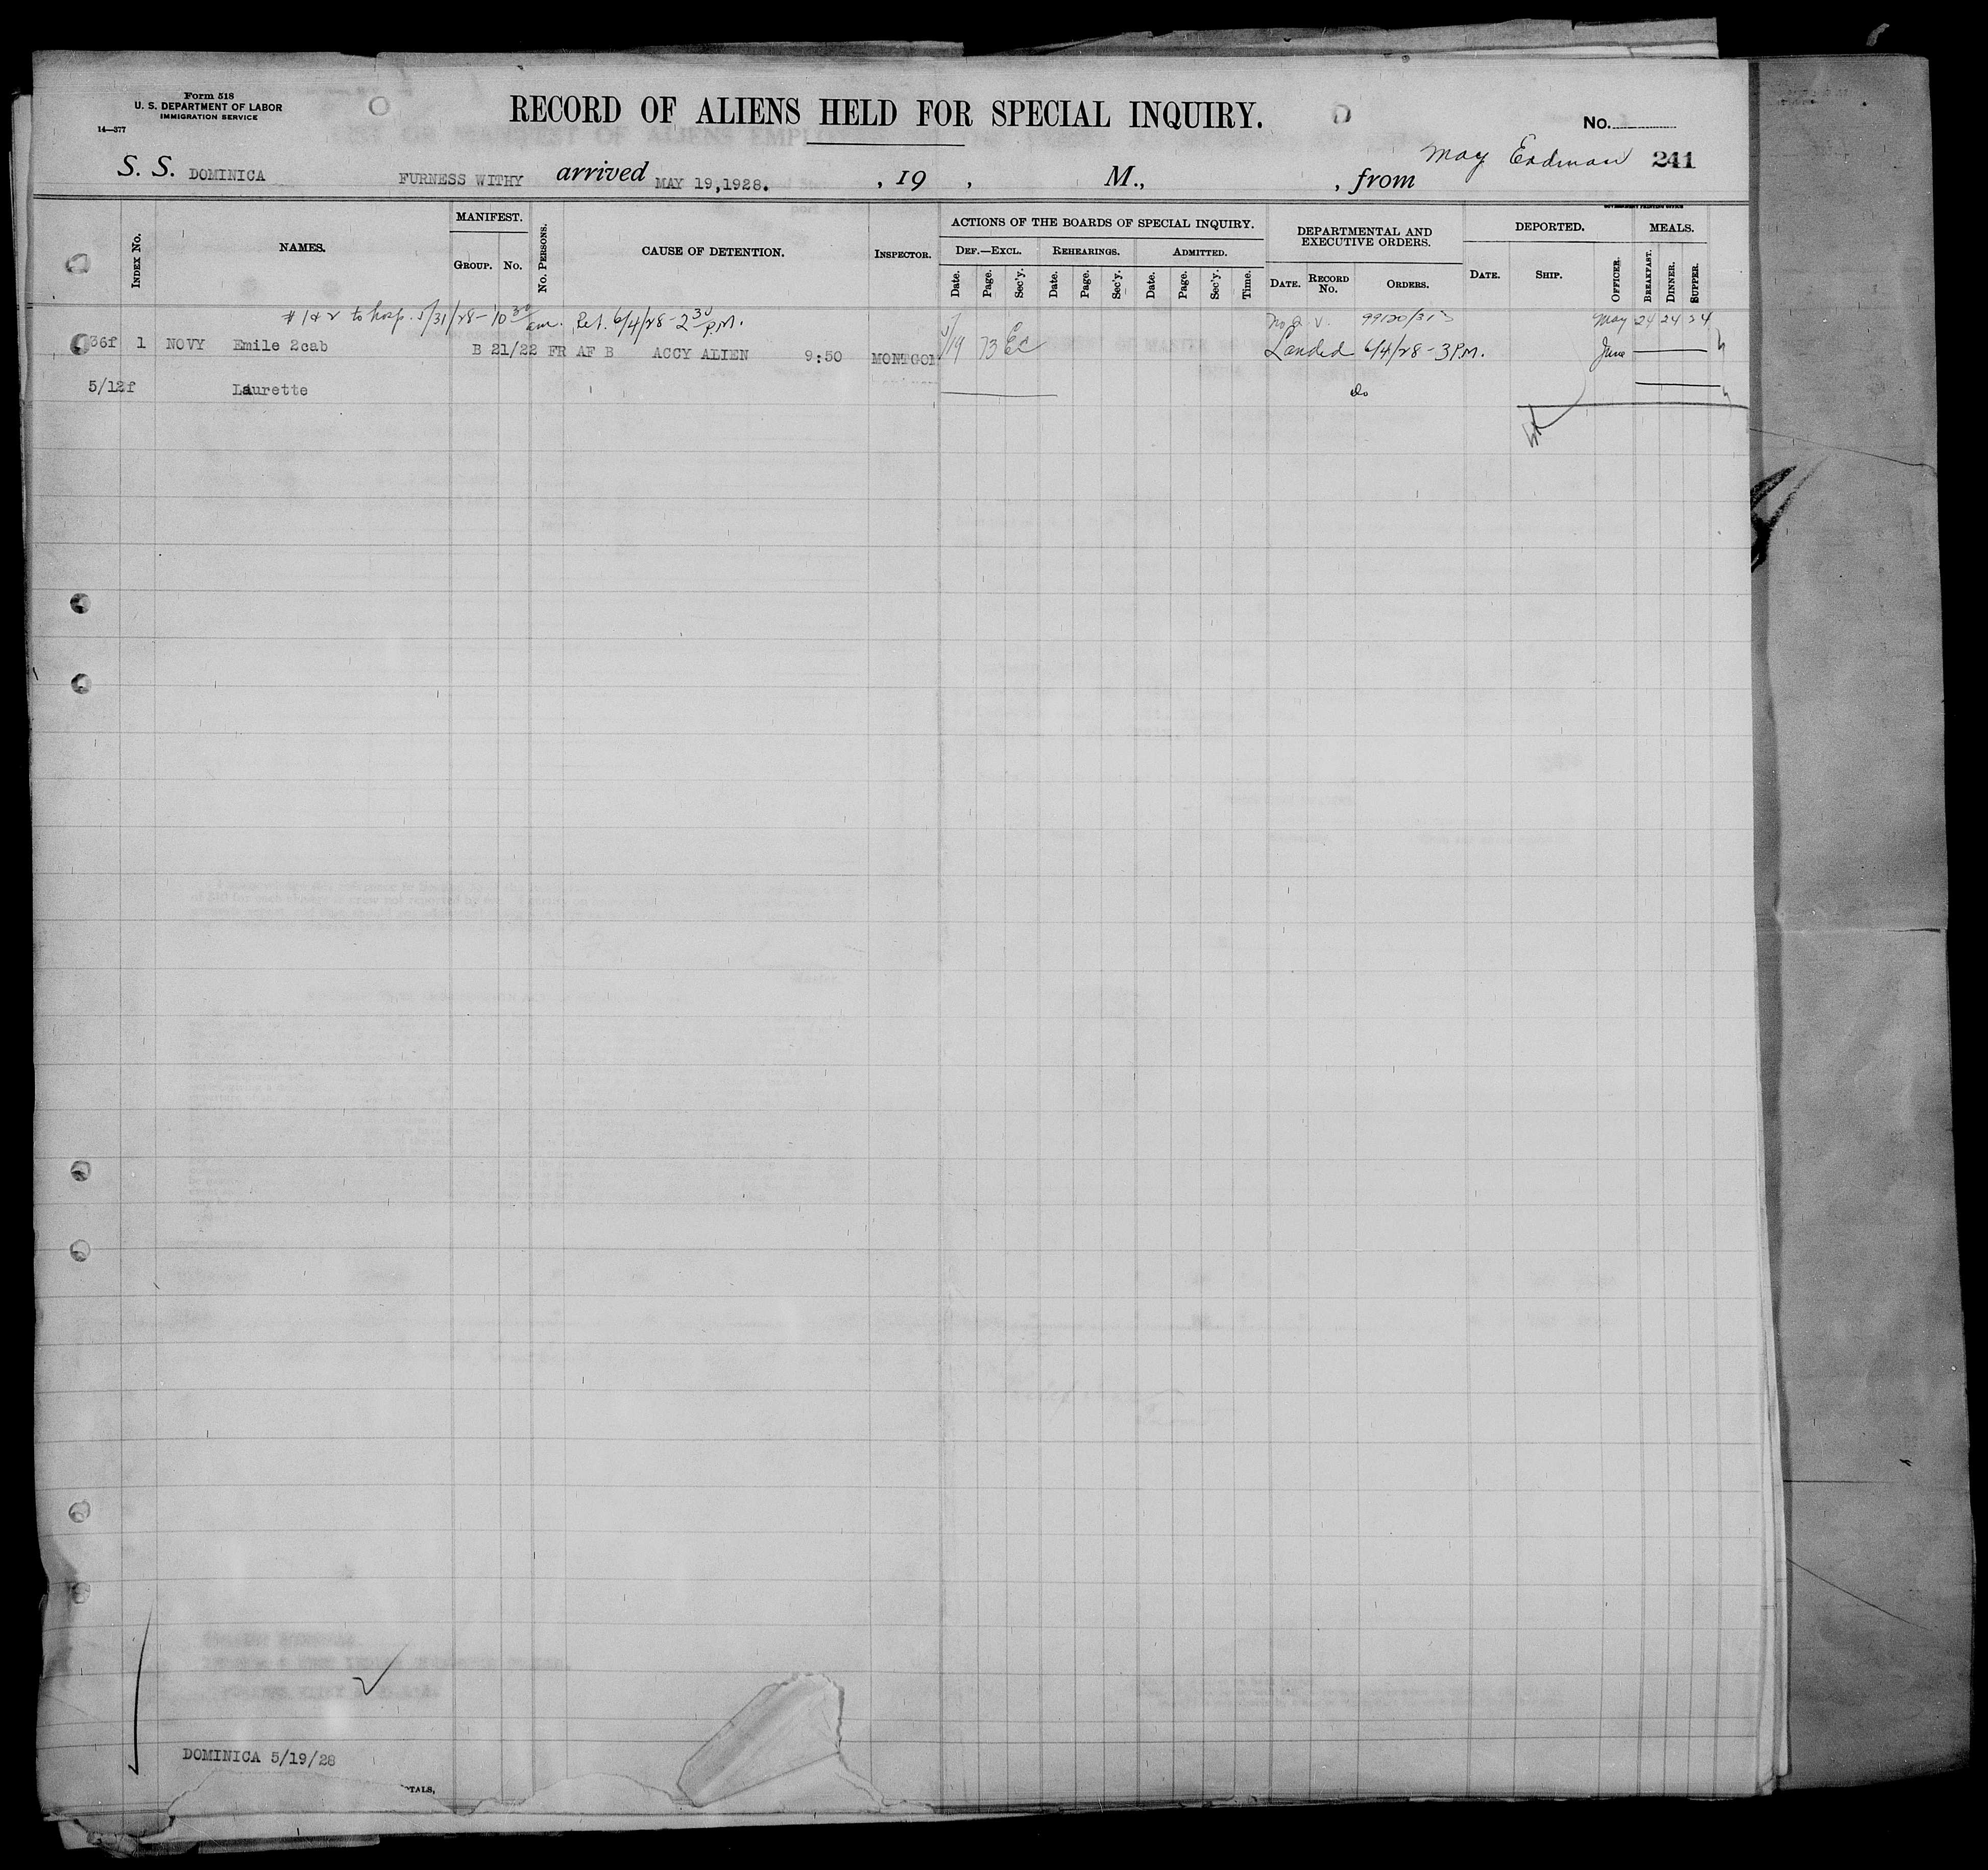 Form 518
U. S. DEPARTMENT OF LABOR
IMMIGRATION SERVICE
14—377
RECORD OF ALIENS HELD FOR SPECIAL INQUIRY.
No.
May Erdman 241
S. S. DOMINICA FURNESS WITHY arrived MAY 19,1928. , 19 , M., , from
GOVERNMENT PRINTING OFFICE
INDEX No. NAMES. MANIFEST. GROUP. No. No. PERSONS. CAUSE OF DETENTION. INSPECTOR. ACTIONS OF THE BOARDS OF SPECIAL INQUIRY. DEPARTMENTAL AND EXECUTIVE ORDERS. DEPORTED. MEALS.
DEF.—EXCL. REHEARINGS. ADMITTED.
Date. Page. Sec'y. Date. Page. Sec'y. Date. Page. Sec'y. Time. DATE. RECORD No. ORDERS. DATE. SHIP. OFFICER. BREAKFAST. DINNER. SUPPER.
# 1 & 2 to hosp. 5/31/28 - 10 30 am. Ret. 6/4/28 - 2 30 P.M. 99120/313 May 24 24 24
36f 1 NOVY Emile 2cab B 21/22 FR AF B ACCY ALIEN 9:50 MONTGOM 5/19 73 EC Landed 6/4/28 - 3 P.M. June
5/12f Laurette do
DOMINICA 5/19/28
OTALS,